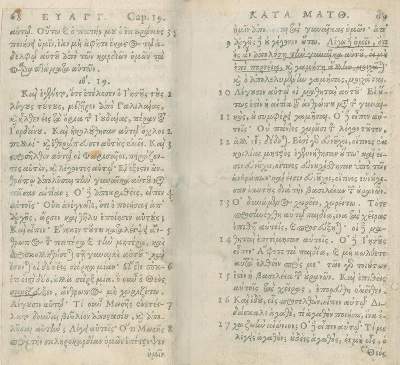 68 ΕΥΑΓΓ. Cap. 19.
αὐτῷ. Οὕτω καὶ ὁ πατήρ μου ὁ ἐπουράνιος 35
ποιήσει ὑμῖν, ἐὰν μὴ ἀφῆτε ἕκαστος τῷ ἀ-
δελφῷ αὐτοῦ ἀπὸ τῶν καρδιῶν ὑμῶν τὰ
παραπτώματα αὐτῶν.
ιθ. 19.
Καὶ ἐγένετο, ὅτε ἐτέλεσεν ὁ Ἰησοῦς τοὺς
λόγους τούτους, μετῆρεν ἀπὸ τῆς Γαλιλαίας,
καὶ ἦλθεν εἰς τὰ ὅρια τῆς Ἰουδαίας, πέραν τοῦ
Ἰορδάνου. Καὶ ἠκολούθησαν αὐτῷ ὄχλοι 2
πολλοί· καὶ ἐθεράπευσεν αὐτοὺς ἐκεῖ. Καὶ 3
προσῆλθον αὐτῷ οἱ Φαρισαῖοι, πειράζον-
τες αὐτὸν, καὶ λέγοντες αὐτῷ· Εἰ ἔξεστιν ἀν-
θρώπῳ ἀπολῦσαι τὴν γυναῖκα αὐτοῦ κατὰ
πᾶσαν αἰτίαν; Ὁ δὲ ἀποκριθεὶς, εἶπεν 4
αὐτοῖς· Οὐκ ἀνέγνωτε, ὅτι ὁ ποιήσας ἀπ᾽
ἀρχῆς, ἄρσεν καὶ θῆλυ ἐποίησεν αὐτούς;
Καὶ εἶπεν· Ἕνεκεν τούτου καταλείψει ἄν- 5
θρωπος τὸν πατέρα καὶ τὴν μητέρα, καὶ
προσκολληθήσεται τῇ γυναικὶ αὐτοῦ· καὶ ἔσον-
ται οἱ δύο εἰς σάρκα μίαν. Ὥστε οὐκέ- 6
τι εἰσὶ δύο, ἀλλὰ σὰρξ μία. ὃ οὖν ὁ Θεὸς
συνέζευξεν, ἄνθρωπος μὴ χωριζέτω.
Λέγουσιν αὐτῷ· Τί οὖν Μωσῆς ἐνετεί- 7
λατο δοῦναι βιβλίον ἀποστασίου, καὶ ἀπο-
λῦσαι αὐτήν; Λέγει αὐτοῖς· Ὅτι Μωσῆς 8
πρὸς τὴν σκληροκαρδίαν ὑμῶν ἐπέτρεψεν
ὑμῖν
ΚΑΤΑ ΜΑΤΘ. 69
ὑμῖν ἀπολῦσαι τὰς γυναῖκας ὑμῶν· ἀπ᾽
9 ἀρχῆς δὲ οὐ γέγονεν οὕτω. Λέγω δὲ ὑμῖν, ὅτι
ὃς ἂν ἀπολύσῃ τὴν γυναῖκα αὐτοῦ, εἰ μὴ
ἐπὶ πορνείᾳ, καὶ γαμήσῃ ἄλλην, μοιχᾶται·
καὶ ὁ ἀπολελυμένην γαμήσας, μοιχᾶται.
10 Λέγουσιν αὐτῷ οἱ μαθηταὶ αὐτοῦ· Εἰ οὕ-
τως ἐστὶν ἡ αἰτία τοῦ ἀνθρώπου μετὰ τῆς γυναι-
11 κὸς, οὐ συμφέρει γαμῆσαι. Ὁ δὲ εἶπεν αὐ-
τοῖς· Οὐ πάντες χωροῦσι τὸν λόγον τοῦτον,
12 ἀλλ᾽ οἷς δέδοται. Εἰσὶ γὰρ εὐνοῦχοι, οἵτινες ἐκ
κοιλίας μητρὸς ἐγεννήθησαν οὕτω· καί εἰσιν
εὐνοῦχοι, οἵτινες εὐνουχίσθησαν ὑπὸ τῶν ἀν-
θρώπων· καί εἰσιν εὐνοῦχοι, οἵτινες εὐνούχι-
σαν ἑαυτοὺς διὰ τὴν βασιλείαν τῶν οὐρανῶν.
13 Ὁ δυνάμενος χωρεῖν, χωρείτω. Τότε
προσηνέχθη αὐτῷ παιδία, ἵνα τὰς χεῖρας
ἐπιθῇ αὐτοῖς, καὶ προσεύξηται· οἱ δὲ μα-
14 θηταὶ ἐπετίμησαν αὐτοῖς. Ὁ δὲ Ἰησοῦς
εἶπεν· Ἄφετε τὰ παιδία, καὶ μὴ κωλύετε
αὐτὰ ἐλθεῖν πρός με· τῶν γὰρ τοιούτων
15 ἐστὶν ἡ βασιλεία τῶν οὐρανῶν. Καὶ ἐπιθεὶς
αὐτοῖς τὰς χεῖρας, ἐπορεύθη ἐκεῖθεν.
16 Καὶ ἰδοὺ, εἷς προσελθὼν, εἶπεν αὐτῷ· Δι-
δάσκαλε ἀγαθὲ, τί ἀγαθὸν ποιήσω, ἵνα ἔ-
17 χω ζωὴν αἰώνιον; Ὁ δὲ εἶπεν αὐτῷ· Τί με
λέγεις ἀγαθόν; οὐδεὶς ἀγαθὸς, εἰ μὴ εἷς, ὁ
Θεός